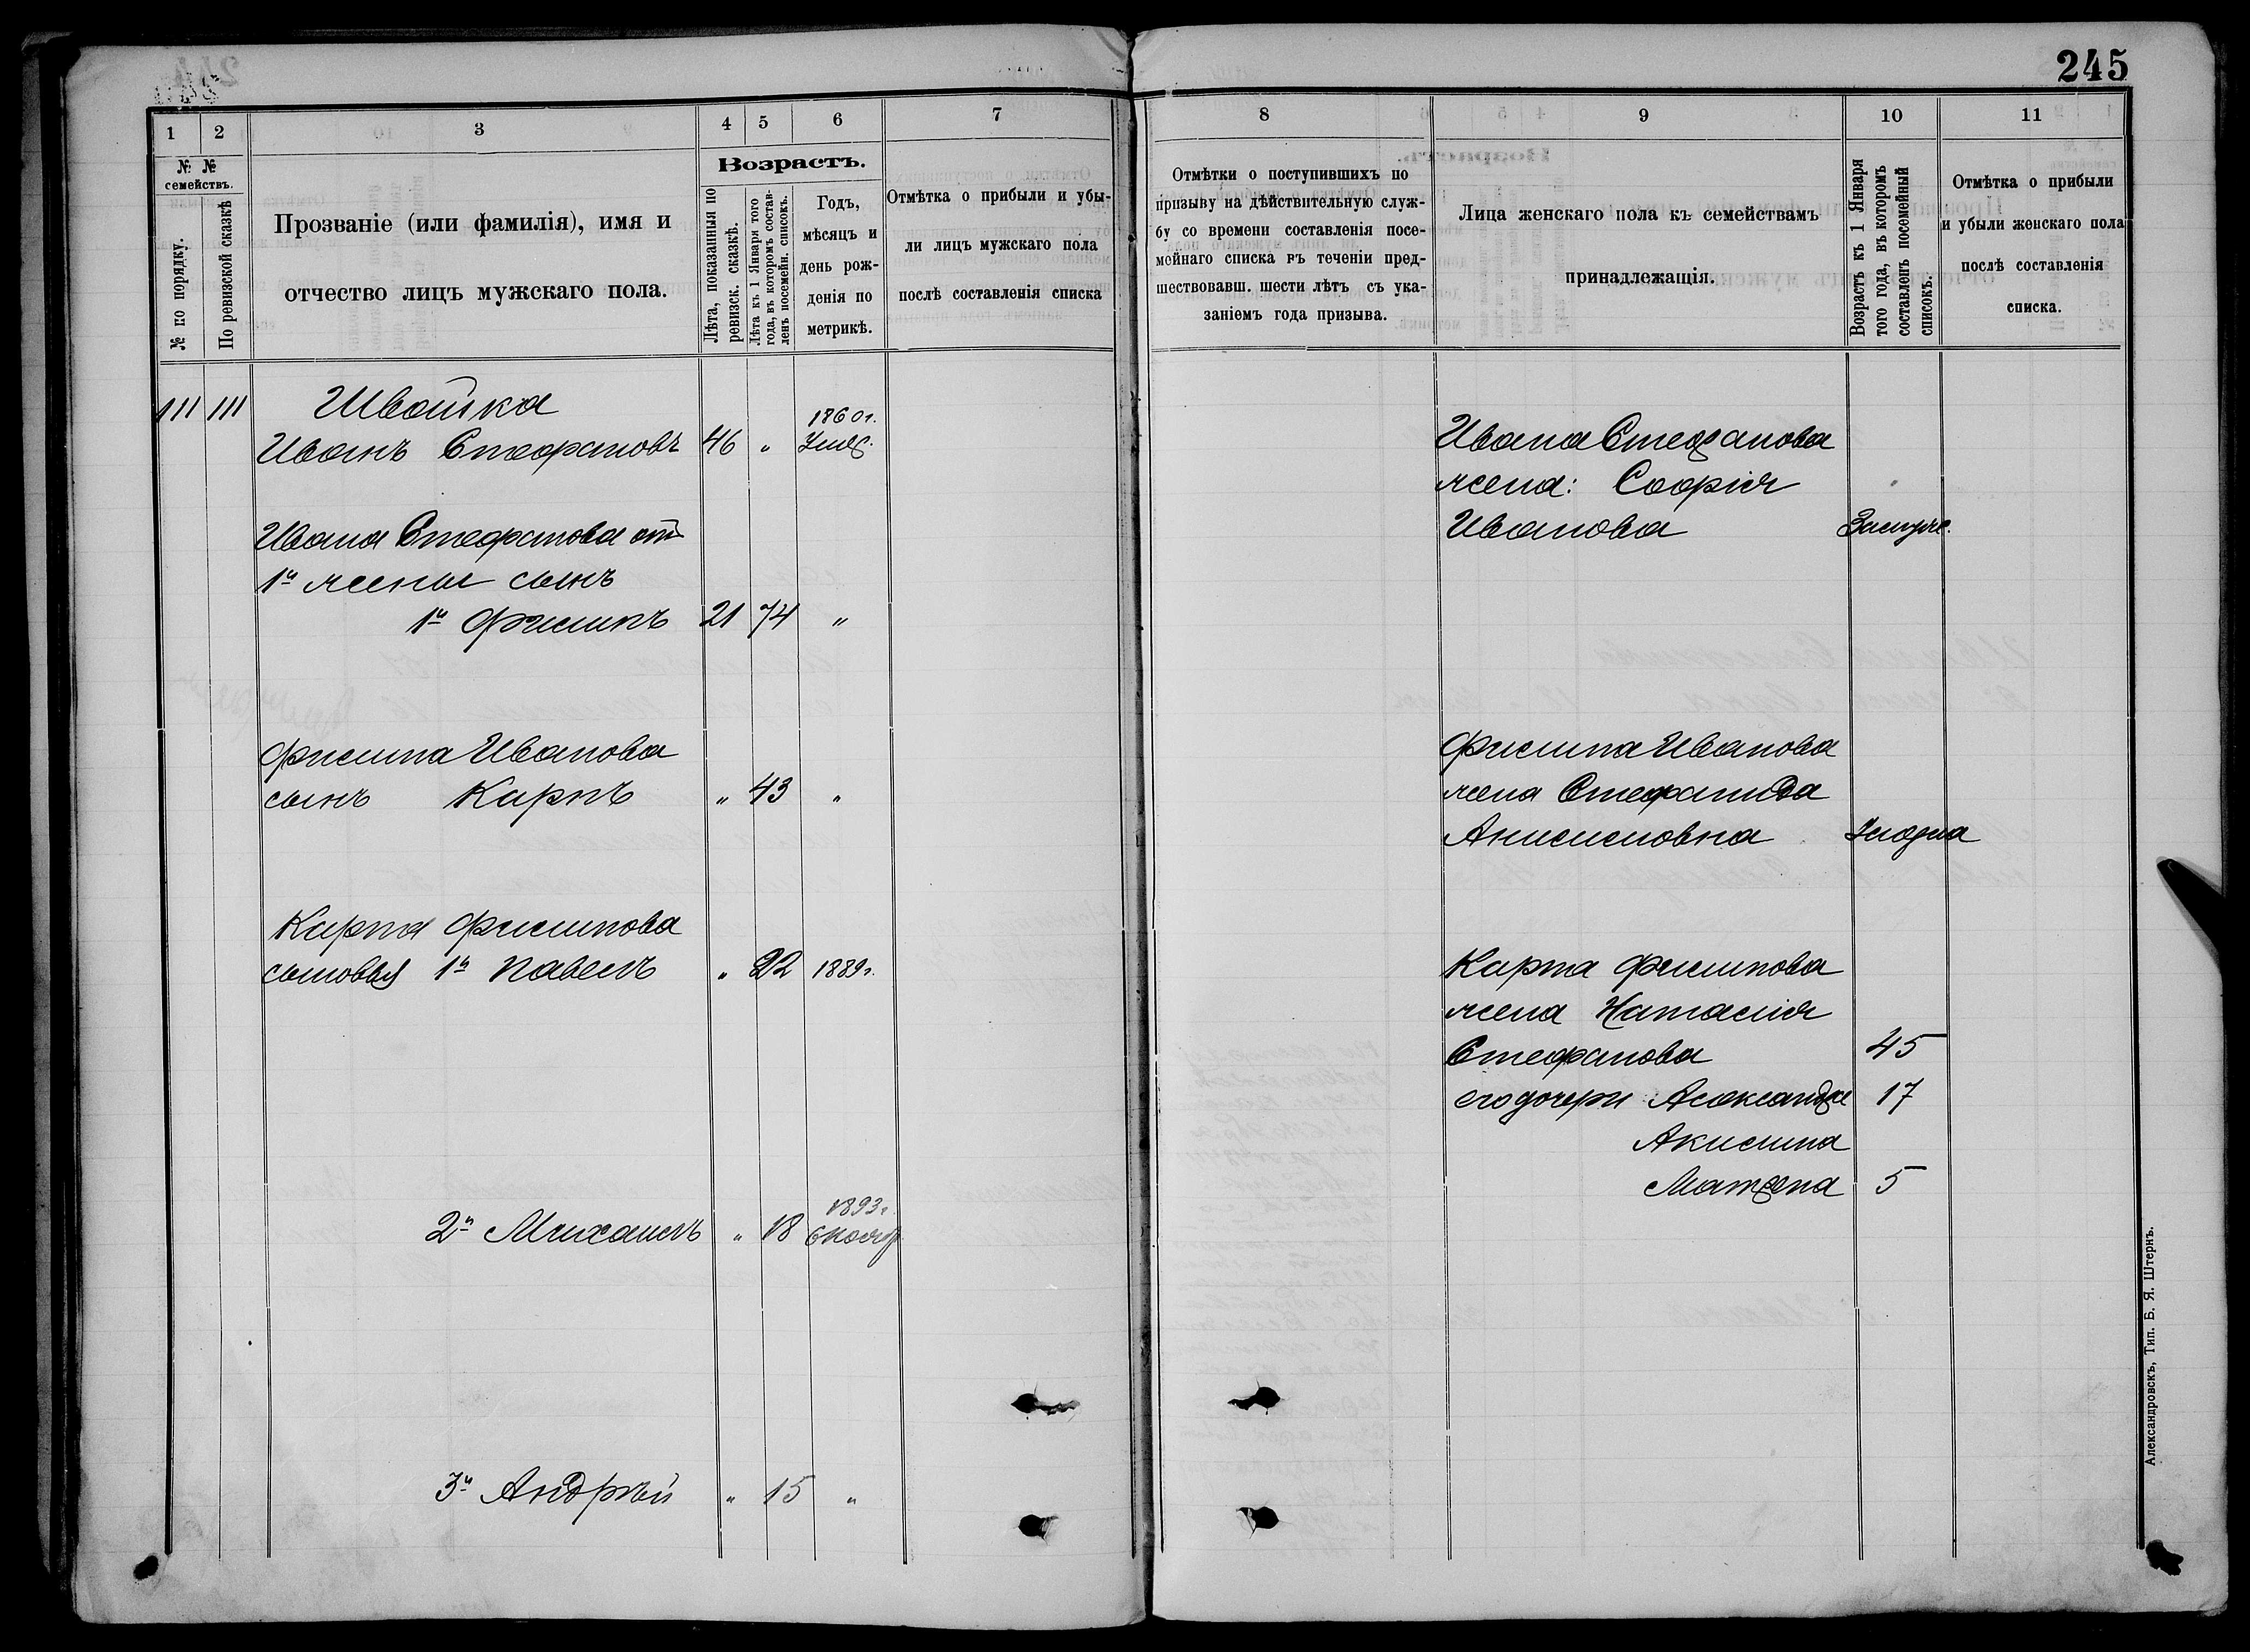 245
1 2 3 4 5 6 7
№ №
семействъ.
№ по порядку.
По ревизской сказкѣ
Прозваніе (или фамилія), имя и
отчество лицъ мужскаго пола.
Возрастъ.
Лѣта, показанныя по
ревизск. сказкѣ.
Лѣта къ 1 Января того
года, въ которомъ состав-
ленъ посемейн. списокъ.
Годъ,
мѣсяцъ и
день рож-
денія по
метрикѣ.
Отмѣтка о прибыли и убы-
ли лицъ мужскаго пола
послѣ составленія списка
111 111 Швайка
1860 г.
Иванъ Стефановъ 46 „
Ивана Стефанова отъ
1й жены сынъ
1й Филипъ 21 74 „
Филипа Иванова
сынъ Карпъ „ 43 „
Карпа Филипова
сыновья 1й Павелъ „ 22 1889 г.
1893 г.
2й Михаилъ „ 18 6 Ноябр
3й Андрѣй „ 15 „
8 9 10 11
Отмѣтки о поступившихъ по
призыву на дѣйствительную служ-
бу со времени составленія посе-
мейнаго списка въ теченіи пред-
шествовавш. шести лѣтъ съ ука-
заніемъ года призыва.
Лица женскаго пола къ семействамъ
принадлежащія.
Возрастъ къ 1 Января
того года, въ которомъ
составленъ посемейный
списокъ.
Отмѣтка о прибыли
и убыли женскаго пола
послѣ составленія
списка.
Ивана Стефанова
жена: Софія
Иванова
Филипа Иванова
жена Стефанида
Анисимовна
Карпа Филипова
жена Наталія
Стефанова 45
его дочери Александра 17
Акилина
Матрена 5
Александровскъ, Тип. Б. Я. Штернъ.